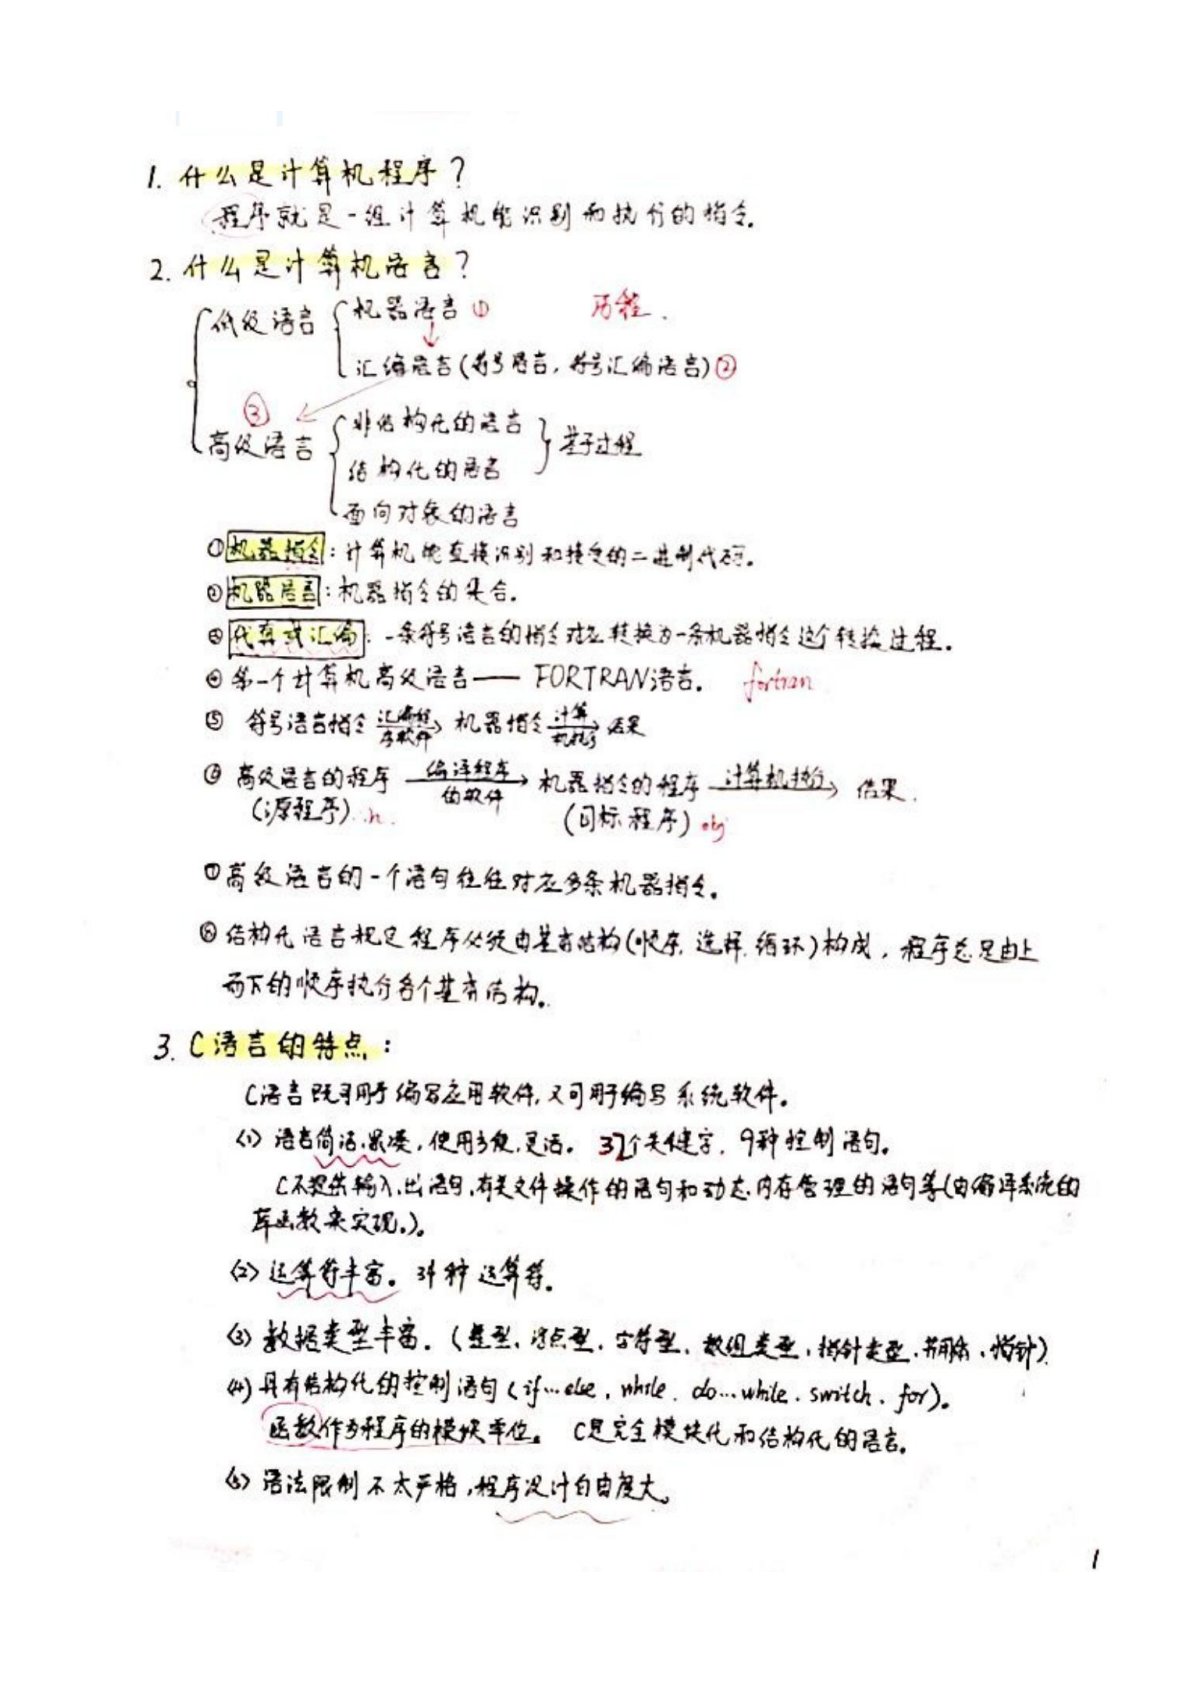 1. 什么是计算机程序？
程序就是一组计算机能识别和执行的指令。
2. 什么是计算机语言？
低级语言 机器语言 ① 历程.
汇编语言(符号语言, 符号汇编语言) ②
③
高级语言 非结构化的语言
结构化的语言 基于过程
面向对象的语言
① 机器指令：计算机能直接识别和接受的二进制代码。
② 机器语言：机器指令的集合。
③ 代真或汇编：一条符号语言的指令对应转换为一条机器指令这个转换过程。
④ 第一个计算机高级语言—— FORTRAN语言. fortran
⑤ 符号语言指令 汇编程序软件→ 机器指令 计算机执行→ 结果
⑥ 高级语言的程序 编译程序的软件→ 机器指令的程序 计算机执行→ 结果.
(源程序) (目标程序) obj
⑦ 高级语言的一个语句往往对应多条机器指令。
⑧ 结构化语言规定程序必须由基本结构(顺序. 选择. 循环)构成，程序总是由上
而下的顺序执行各个基本结构。
3. C语言的特点：
C语言既可用于编写应用软件,又可用于编写系统软件。
(1) 语言简洁.紧凑，使用方便.灵活。 32个关键字. 9种控制语句。
C不提供输入.出语句,有关文件操作的语句和动态.内存管理的语句等(由编译系统的
库函数来实现.)。
(2) 运算符丰富。34种运算符。
(3) 数据类型丰富.（整型、浮点型、字符型、数组类型、指针类型、共用体、指针）.
(4) 具有结构化的控制语句(if…else, while. do…while. switch. for)。
函数作为程序的模块单位。 C是完全模块化和结构化的语言。
(5) 语法限制不太严格,程序设计自由度大。
1